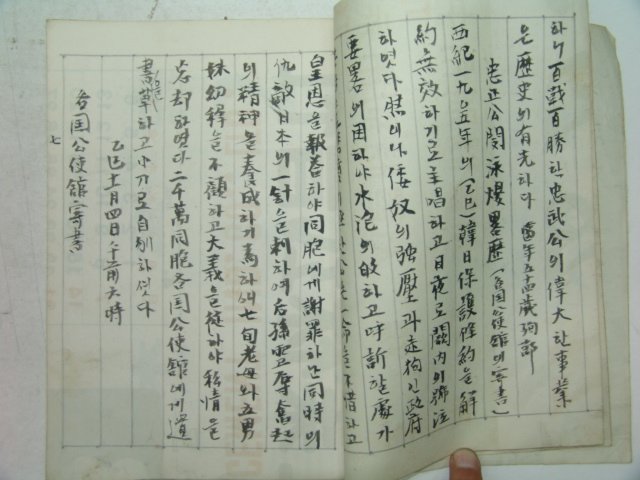 하니 百戰百勝한 忠武公의 偉大한 事業
은 歷史의 有光하다 當年五十四歲殉節
忠正公閔泳煥畧歷(各国公使館의 寄書)
西紀一九〇五年의 (乙巳) 韓日保護條約을 解
約無效하기로 主唱하고 日夜로 闕內의 號泣
하엿다 然의나 倭奴의 強壓과 政府
要畧의 因하야 水泡의 歸하고 呼訴할 處가
皇恩을 報答하야 同胞에게 謝罪하난 同時의
仇敵日本의 一針을 刺하여 后孫雪辱奮起
의 精神을 養成하기 爲하애 七旬老母와 五男
妹幼稚을 不顧하고 大義을 從하야 私情을
忘却하엿다 二千萬同胞各国公使館에게 遺
書草하고 小刀로 自刎하셧다
乙巳十一月四日午前六時
各国公使館寄書
七